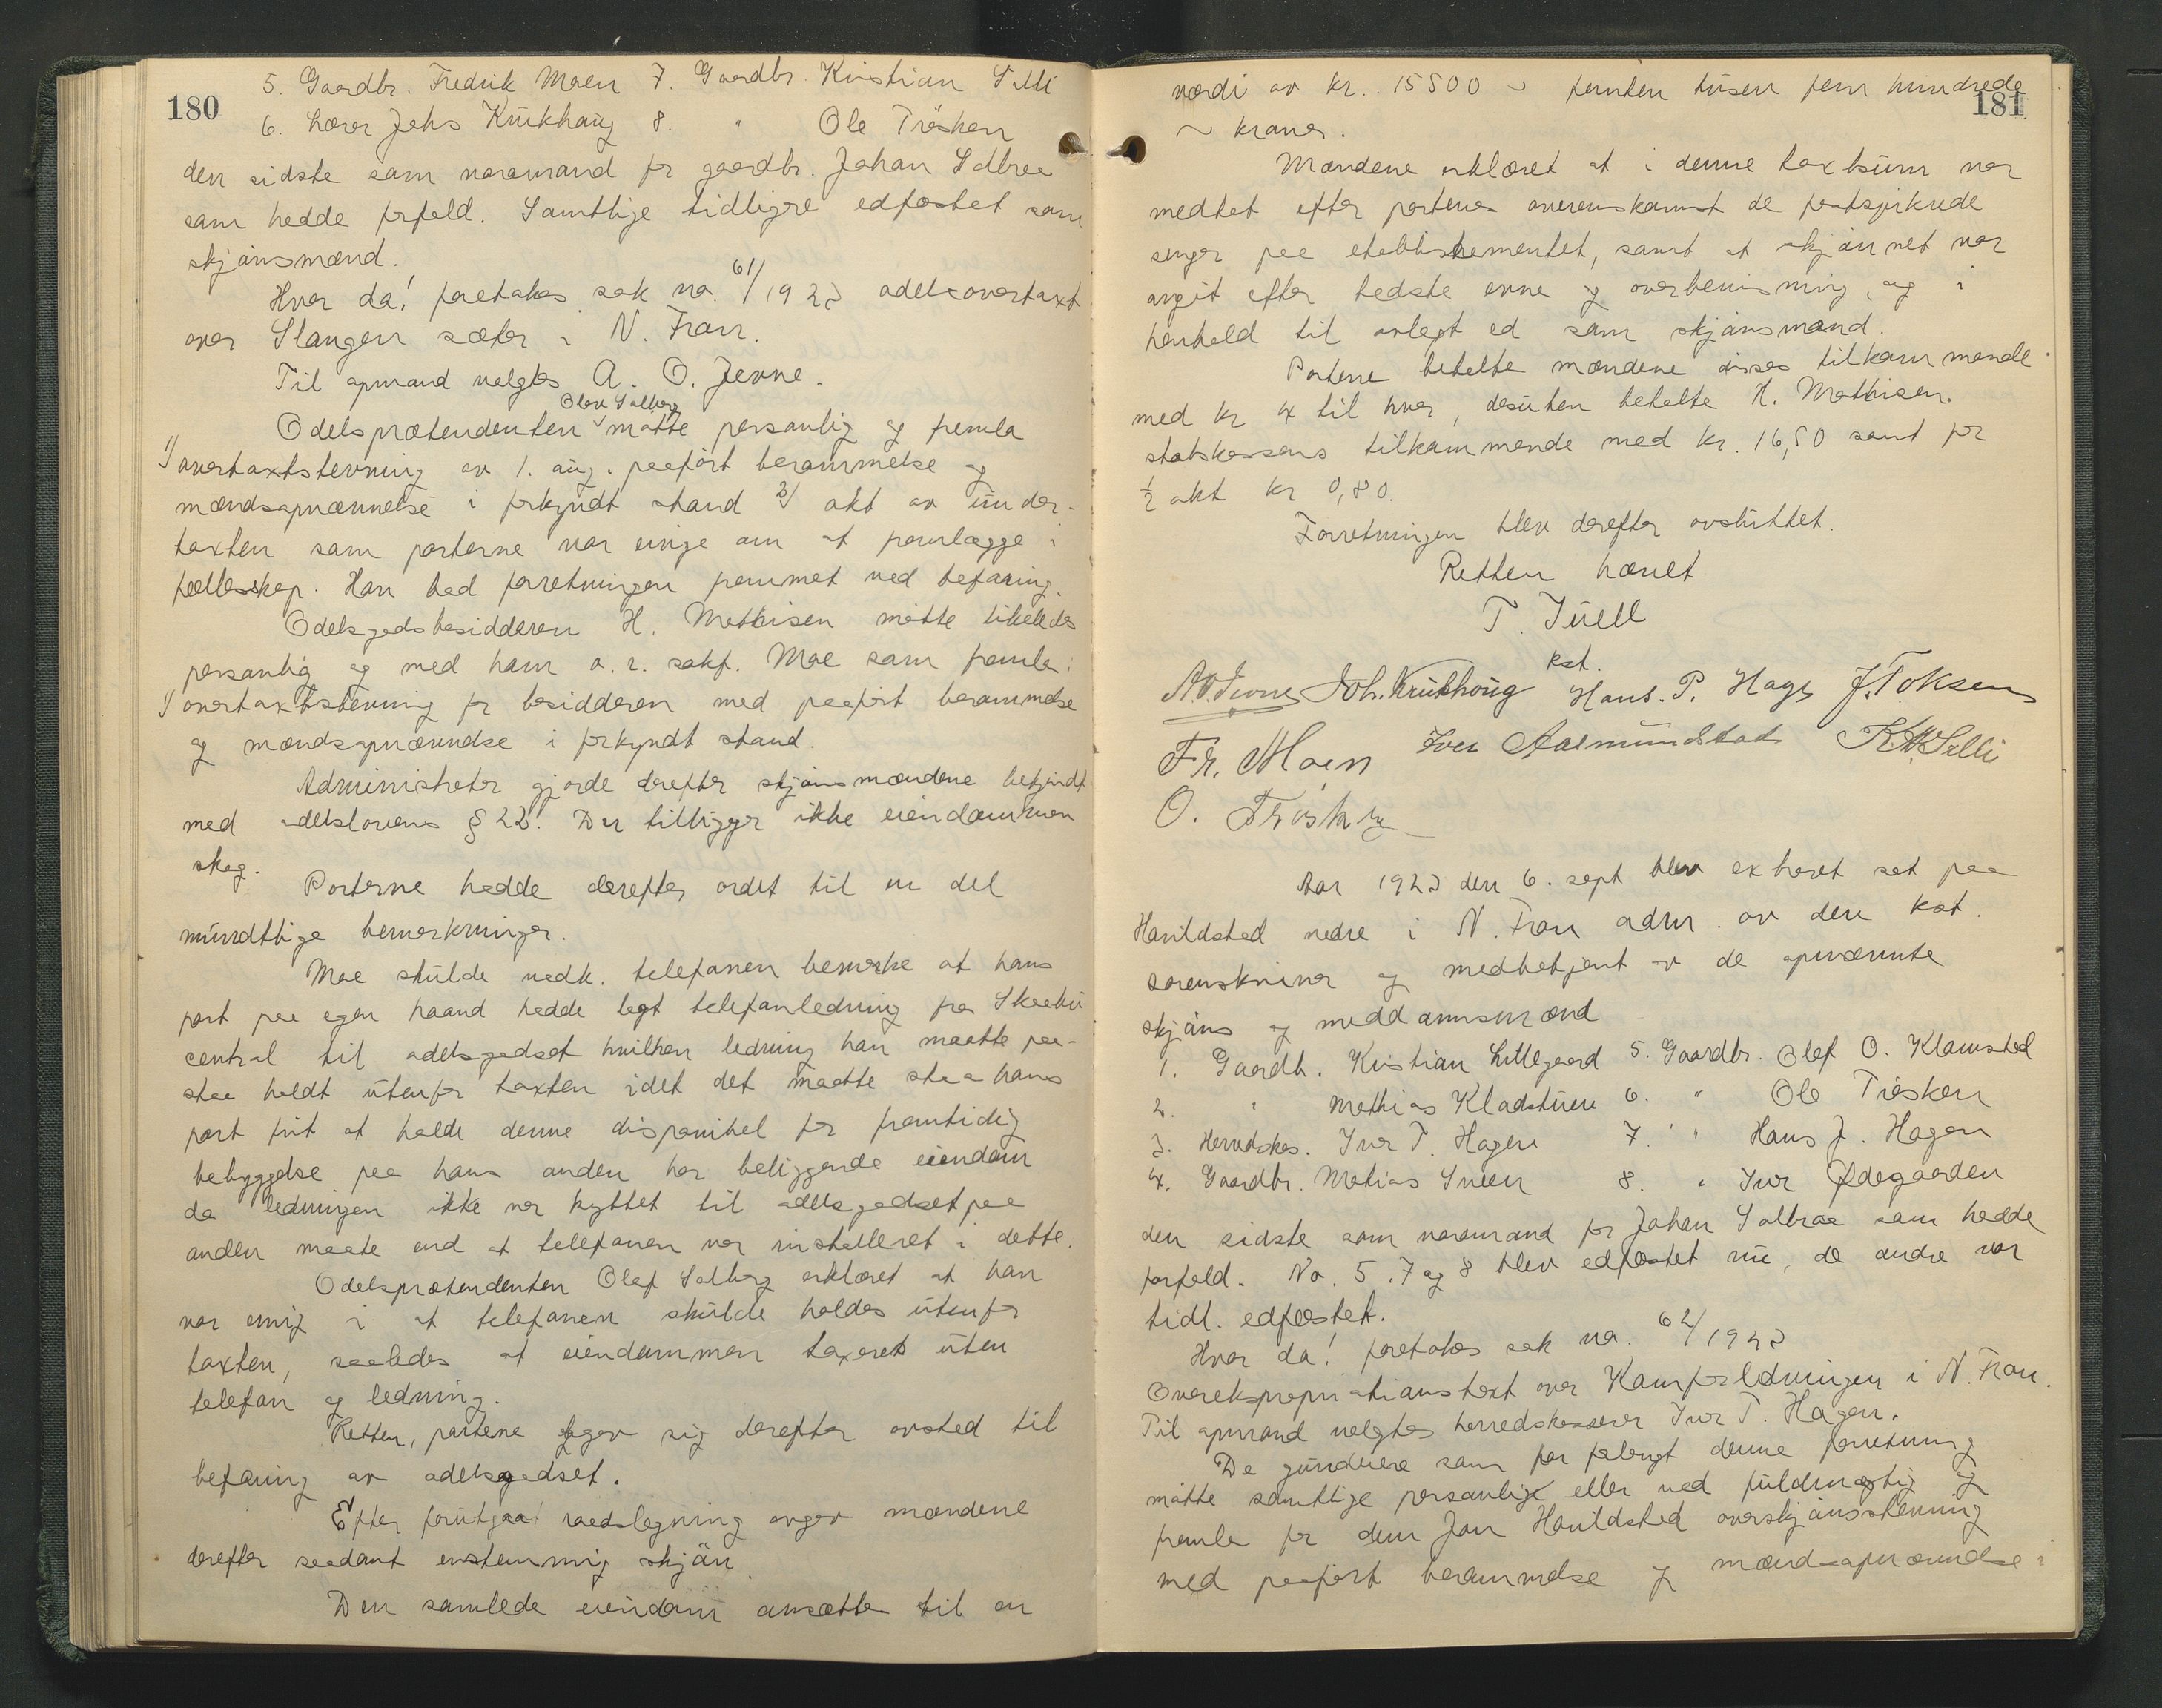 180
5. Gaardbr. Fredrik Moen 7. Gaardbr. Kristian Selli
6. Lærer Johs Krukhaug 8. " Ole Trøsken
den sidste som varamand for gaardbr. Johan Solbraa
som hadde forfald. Samtlige tidligere edfæstet som
skjønsmænd.
Hvor da! foretokes sak no. 61/1923 odelsovertaxt
over Slangen sæter i N. Fron.
Til opmand valgtes A. O. Jevne.
Olav Solberg
Odelsprætendenten møtte personlig og fremla
1/ overtaxtstevning av 1. aug. paaført berammelse og
mændsopnævnelse i forkyndt stand 2/ akt av under-
taxten som parterne var enige om at fremlægge i
fællesskap. Han bad forretningen fremmet ved befaring.
Odelsgodsbesidderen H. Mathisen møtte likeledes
personlig og med ham o.r. sakf. Moe som fremla:
1/ overtaxtstevning for besidderen med paaført berammelse
og mændsopnævnelse i forkyndt stand.
Administrator gjorde derefter skjønsmændene bekjendt
med odelslovens § 22. Der tilligger ikke eiendommen
skog.
Parterne hadde derefter ordet til en del
mundtlige bemerkninger.
Moe skulde vedk. telefonen bemerke at hans
part paa egen haand hadde lagt telefonledning fra Skaabu
central til odelsgodset hvilken ledning han maatte paa-
staa holdt utenfor taxten idet det maatte staa hans
part frit at holde denne disponibel for fremtidig
bebyggelse paa hans anden her beliggende eiendom
da ledningen ikke var knyttet til odelsgodset paa
anden maate end at telefonen var installeret i dette.
Odelsprætendenten Olaf Solberg erklæret at han
var enig i at telefonen skulde holdes utenfor
taxten, saaledes at eiendommen taxeres uten
telefon og ledning.
Retten, partene begav sig derefter avsted til
befaring av odelsgodset.
Efter forutgaat raadslagning avgav mændene
derefter saadant enstemmig skjøn
Den samlede eiendom ansættes til en
181
værdi av kr. 15500 ~ femten tusen fem hundrede
~ kroner.
Mændene erklæret at i denne taxtsum var
medtat efter partenes overenskomst de fastspikrede
senger paa etablissementet, samt at skjønnet var
avgit efter bedste evne og overbevisning, og i
henhold til avlagt ed som skjønsmænd.
Partene betalte mændene disses tilkommende
med kr 4 til hver, desuten betalte H. Mathisen
statskassens tilkommende med kr. 16,50 samt for
1/2 akt kr 0,80.
Forretningen blev derefter avsluttet.
Retten hævet
T. Juell
kst.
A. O. Jevne Joh. Krukhoug Hans. P. Hage J. Toksen
Fr. Moen Iver Aasmundstad K. M. Selli
O. Trøsken
Aar 1923 den 6. sept blev ex.hvret sat paa
Harildstad nedre i N. Fron adm. av den kst.
sorenskriver og medbetjent av de opnævnte
skjøns og meddomsmænd
1. Gaardb. Kristian Lillegaard 5. Gaardbr. Olaf O. Klomstad
2. " Mathias Kladstuen 6. " Ole Trøsken
3. Herredskas. Iver T. Hagen 7. " Hans J. Hagen
4. Gaardbr. Matias Sveen 8. " Iver Ødegaarden
den sidste som varamand for Johan Solbraa som hadde
forfald. No. 5, 7 og 8 blev edfæstet nu, de andre var
tidl. edfæstet.
Hvor da! foretokes sak no. 62/1923
Overekspropriationstaxt over Kamfosledningen i N. Fron.
Til opmand valgtes herredskasserer Iver T. Hagen.
De grundeiere som har forlangt denne forretning
møtte samtlige personlig eller ved fuldmægtig og
fremla for dem Jon Harildstad overskjønsstevning
med paaført berammelse og mændsopnævnelse i